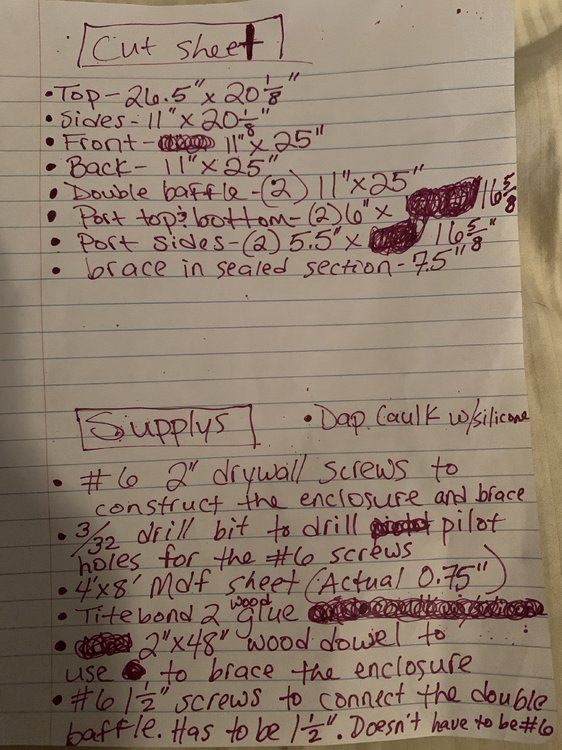 Cut sheet
• Top - 26.5" x 20 1/8"
• Sides - 11" x 20 1/8"
• Front - 11" x 25"
• Back - 11" x 25"
• Double baffle - (2) 11" x 25"
• Port top & bottom - (2) 6" x 16 5/8
• Port sides - (2) 5.5" x 16 5/8"
• brace in sealed section - 7.5"
Supplys
• Dap Caulk w/silicone
• #6 2" drywall screws to
construct the enclosure and brace
• 3/32 drill bit to drill pilot
holes for the #6 screws
• 4'x8' Mdf sheet (Actual 0.75")
• Titebond 2 wood glue
• 2"x48" wood dowel to
use to brace the enclosure
• #6 1 1/2" screws to connect the double
baffle. Has to be 1 1/2". Doesn't have to be #6